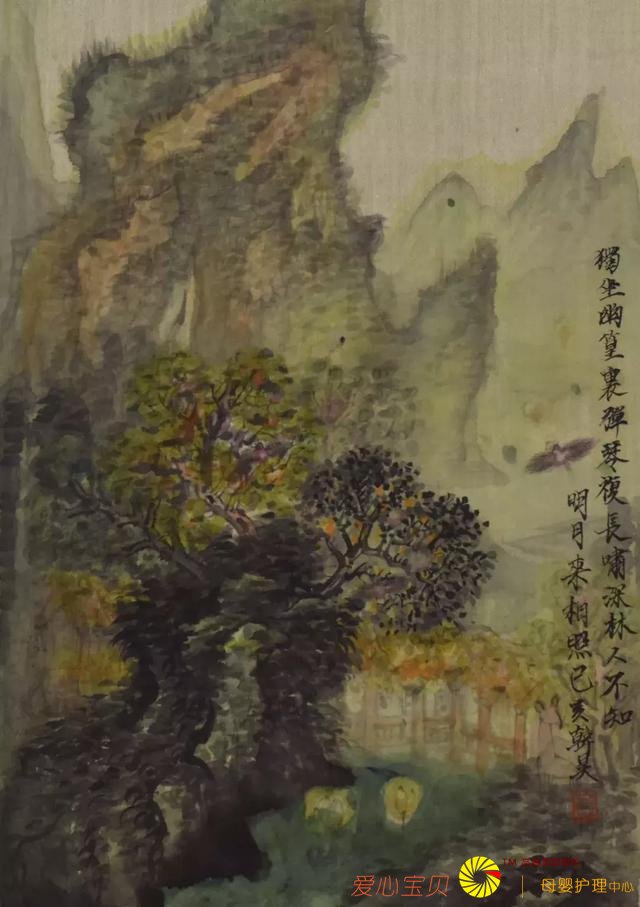 獨坐幽篁裏彈琴復長嘯深林人不知
明月來相照己亥
爱心宝贝
母婴护理中心